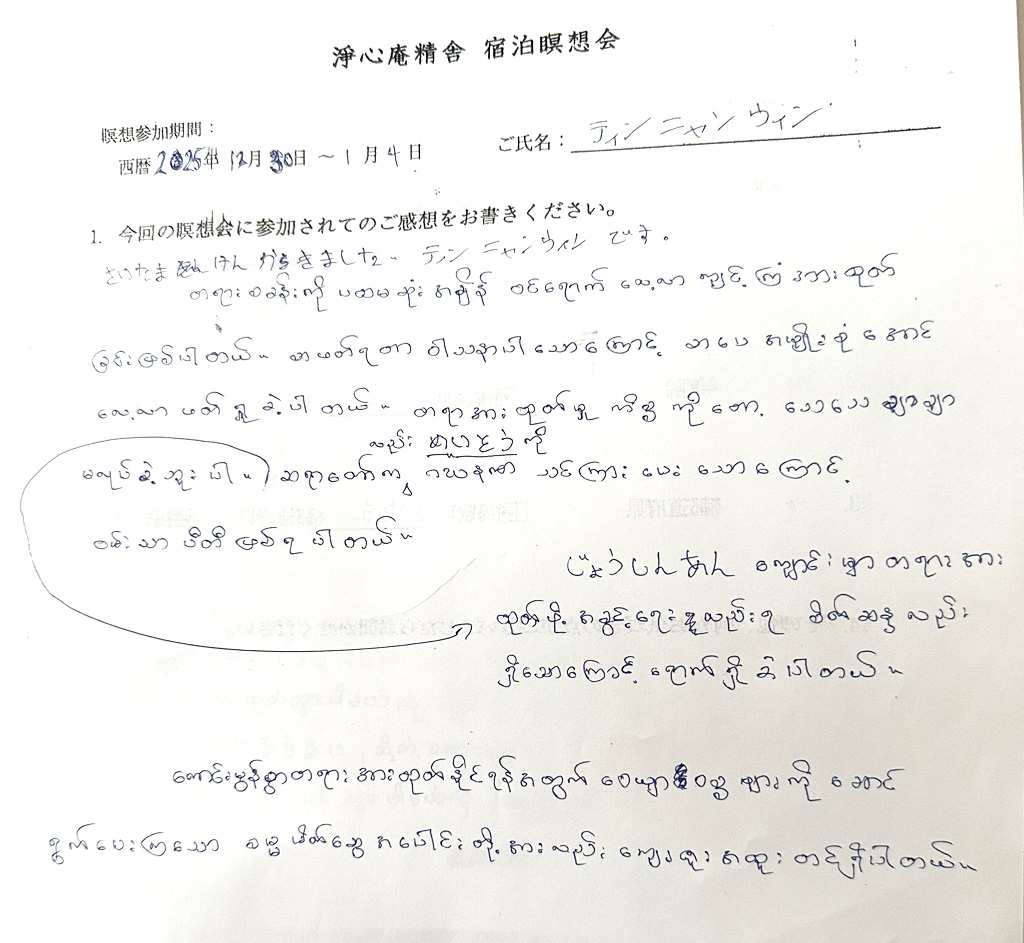 淨心庵精舎 宿泊瞑想会
瞑想参加期間：
西暦 2025年 12月 30日 ～ 1 月 4 日
ご氏名： ティン ニャン ウィン
1. 今回の瞑想会に参加されてのご感想をお書きください。
さいたま けん からきました。 ティン ニャンウィン です。
တရားစခန်းကို ပထမဆုံးအချိန် ဝင်ရောက် လေ့လာ ကျင့်ကြံ အားထုတ်
ခြင်းဖြစ်ပါတယ်။ စာဖတ်ရတာ ဝါသနာပါသောကြောင့် စာပေ အမျိုးစုံအောင်
လေ့လာ ဖတ်ရှုခဲ့ပါတယ်။ တရားအားထုတ်မှု ကိစ္စကိုတော့ သေသေချာချာ
မလုပ်ခဲ့ဘူးပါ။ ဆရာတော်က သင်ကြားပေးသောကြောင့်
လည်း ကို
ဝမ်းသာ ပီတိ ဖြစ်ရပါတယ်။
じょうしんあん ကျောင်းမှာ တရားအား
ထုတ်ဖို့ အခွင့်ရေးလည်းရ စိတ်ဆန္ဒလည်း
ရှိသောကြောင့် ရောက်ရှိခဲ့ပါတယ်။
ကောင်းမွန်စွာတရားအားထုတ်နိုင်ရန်အတွက် ဝေယျာဝစ္စများကို ဆောင်
ရွက်ပေးကြသော ဓမ္မမိတ်ဆွေအပေါင်းတို့အားလည်း ကျေးဇူးအထူးတင်ရှိပါတယ်။